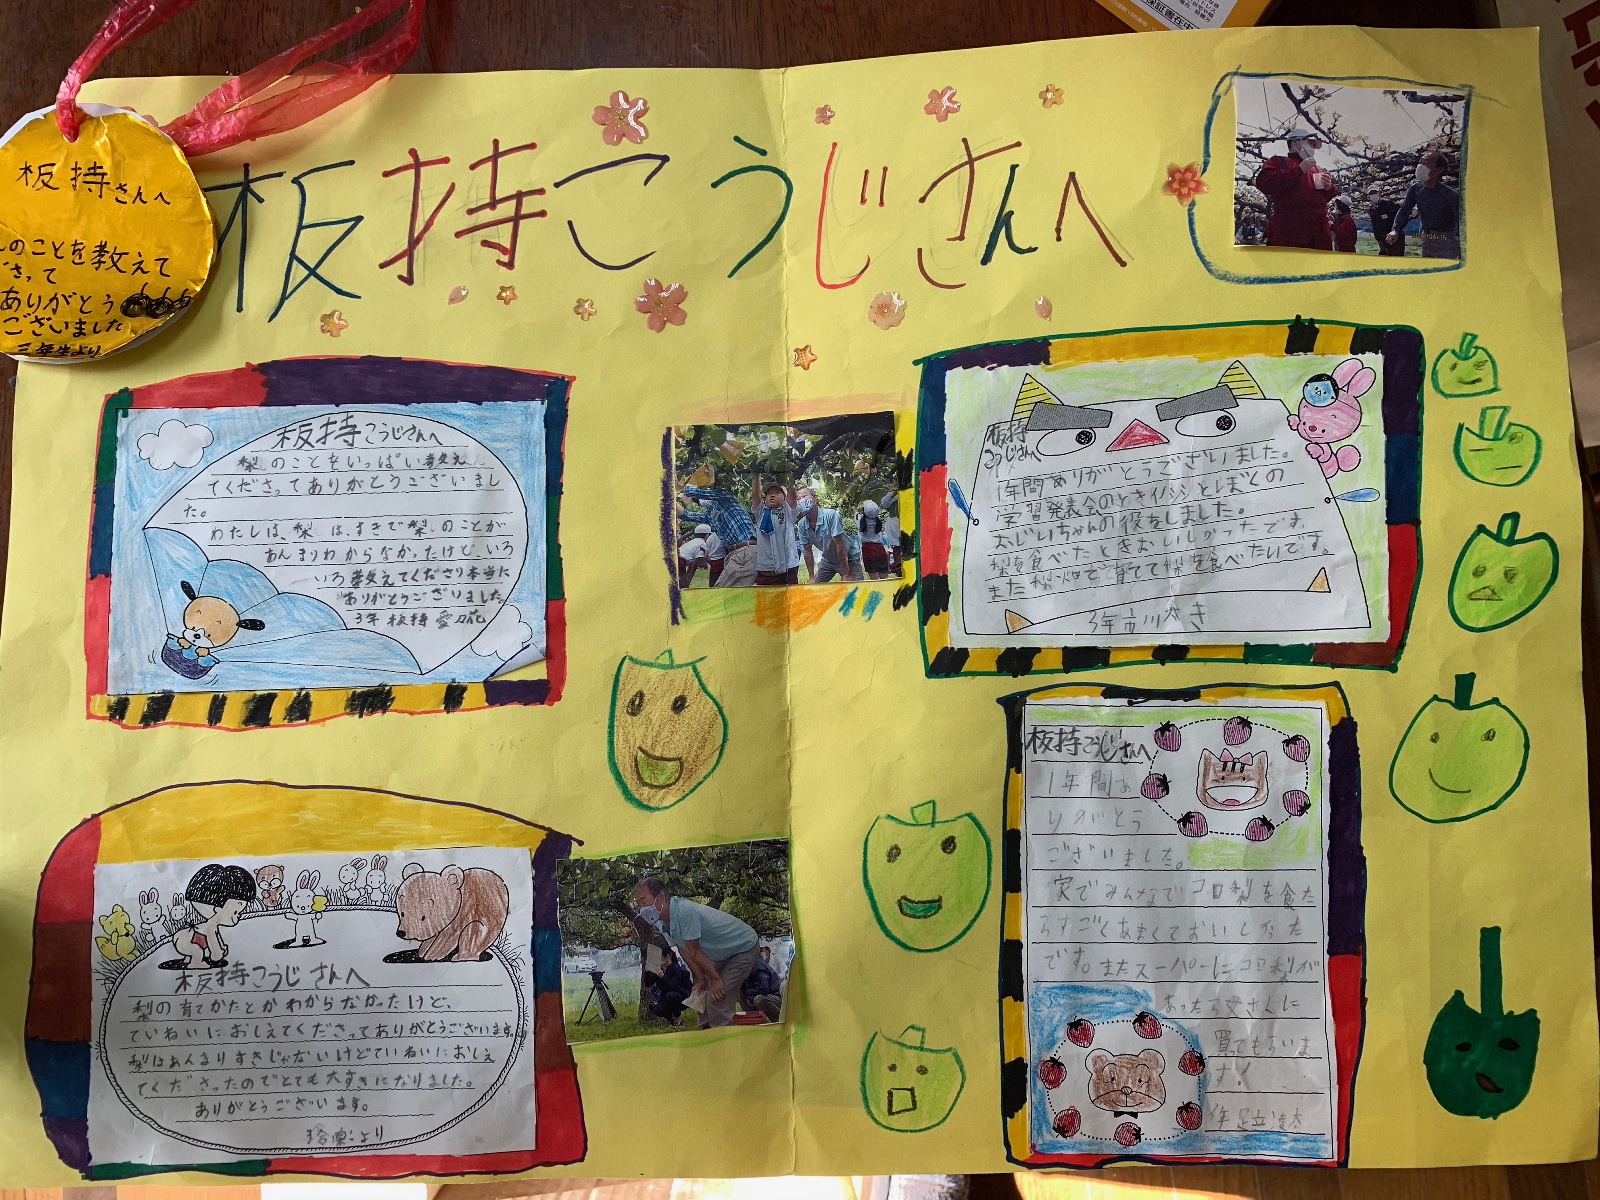 板持こうじさんへ
板持さんへ
のことを教えて
ださって
ありがとう
ございました
三年生より
板持こうじさんへ
梨のことをいっぱい教え
てくださってありがとうございまし
た。
わたしは、梨は、すきで梨のことが
あんまりわからなかったけど、いろ
いろ教えてくださり本当に
ありがとうございました。
3年 板持 愛花
板持
こうじさんへ
1年間ありがとうございました。
学習発表会のときイノシシとぼくの
おじいちゃんの役をしました。
梨を食べたときおいしかったです。
また梨畑で育てて梨を食べたいです。
3年市川大き
板持こうじさんへ
梨の育てかたとかわからなかったけど、
ていねいにおしえてくださってありがとうございます。
梨はあんまりすきじゃないけどていねいにおしえ
てくださったのでとても大すきになりました。
ありがとうございます。
より
板持こうじさんへ
1年間あ
りがとう
ございました。
家でみんなでコロ梨を食た
らすごくあまくておいしかった
です。またスーパーにコロ梨が
あったら母さんに
買てもらいま
す!
年足立